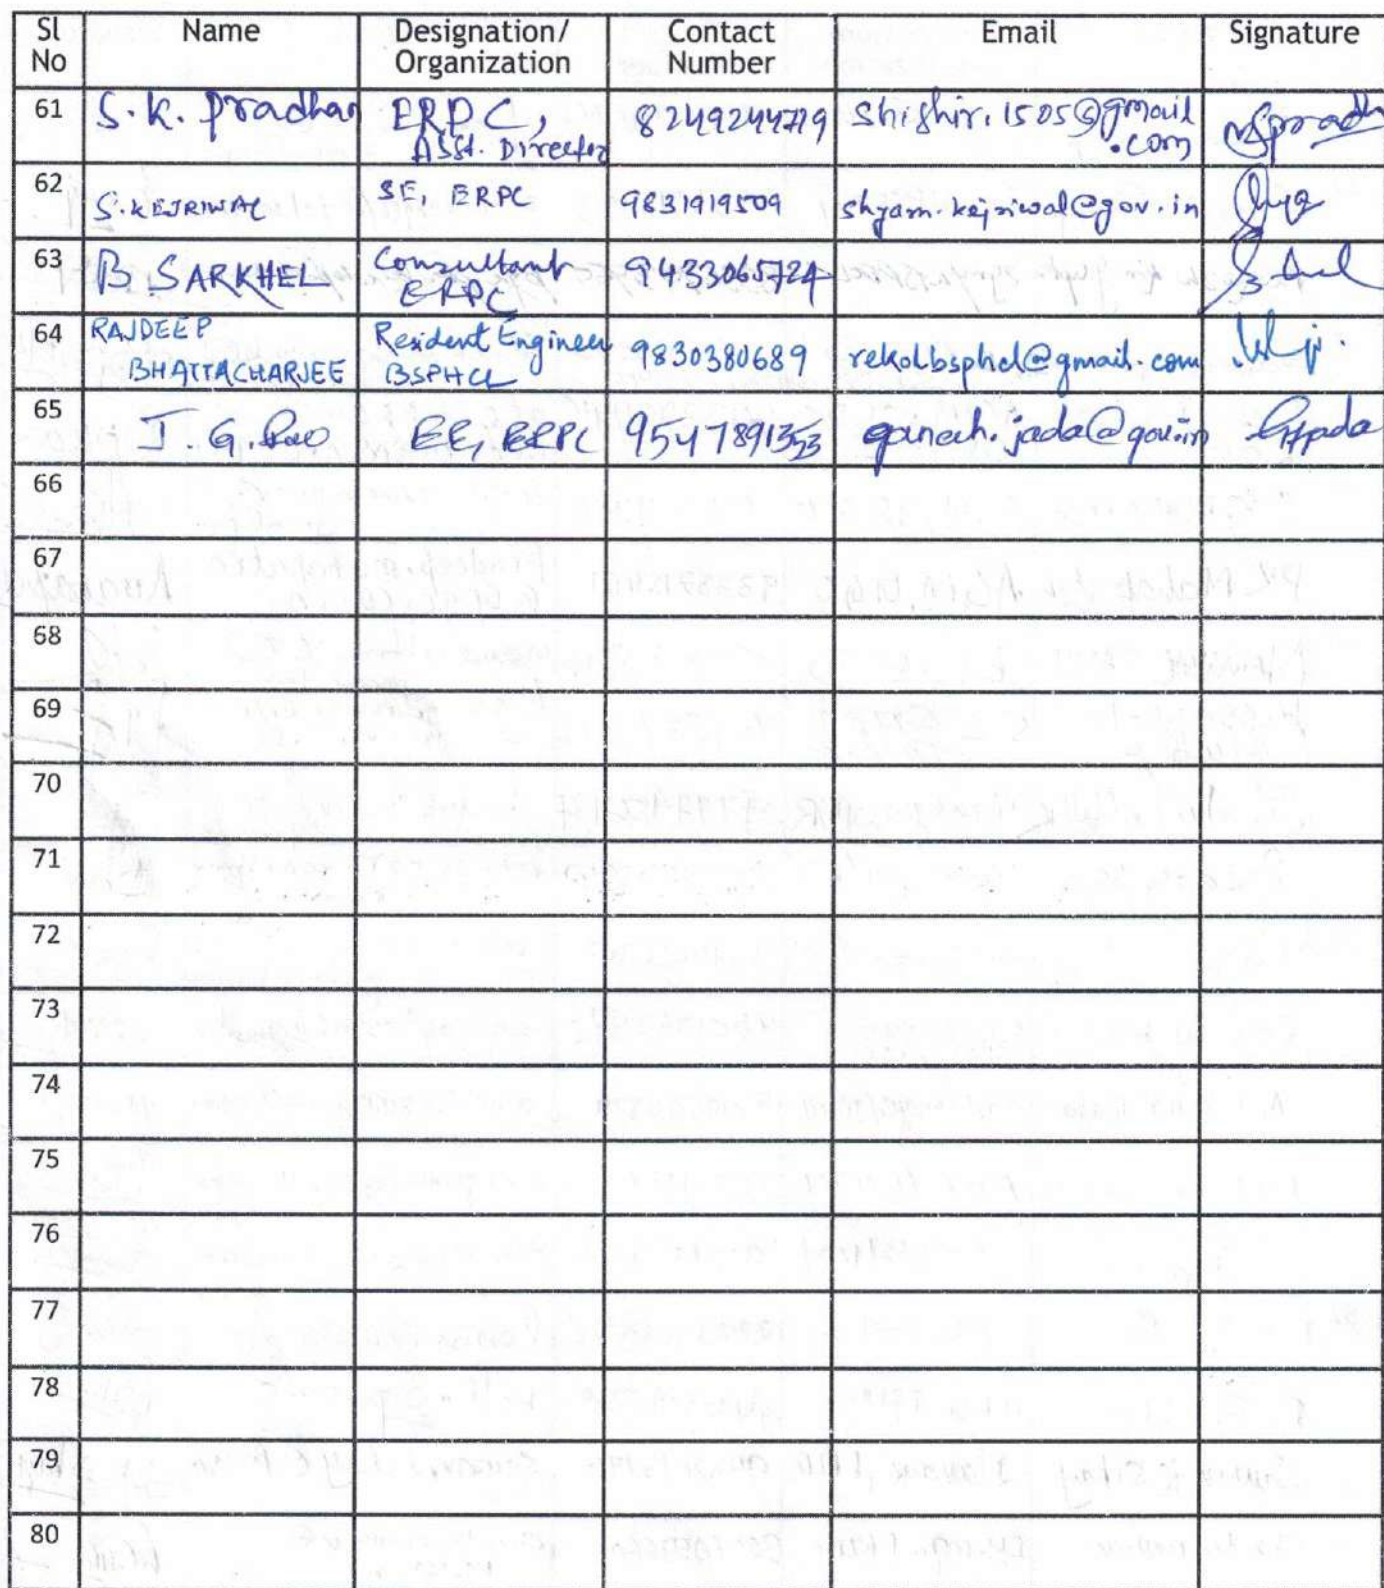 Sl No Name Designation/ Organization Contact Number Email Signature
61 S.K. Pradhan ERPC, Asst. Director 8249244719 shishir.1505@gmail.com
62 S. KEJRIWAL SE, ERPC 9831919509 shyam.kejriwal@gov.in
63 B. SARKHEL Consultant ERPC 9433065724
64 RAJDEEP BHATTACHARJEE Resident Engineer BSPHCL 9830380689 rekolbsphcl@gmail.com
65 J. G. Rao EE, ERPC 9547891353 ganesh.jada@gov.in
66
67
68
69
70
71
72
73
74
75
76
77
78
79
80